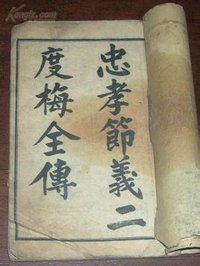 忠孝節義二
度梅全傳
Kongfz.com